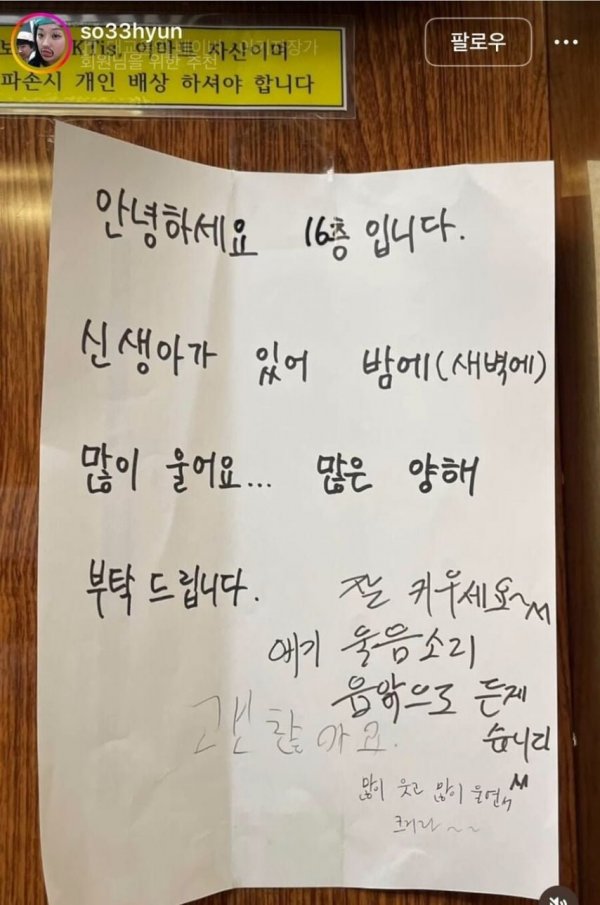 so33hyun
팔로우
KTis, 아파트 자산이며
회원님을 위한 추천
파손시 개인 배상 하셔야 합니다
안녕하세요 16층 입니다.
신생아가 있어 밤에(새벽에)
많이 울어요... 많은 양해
부탁 드립니다.
잘 키우세요~
애기 울음소리
음악으로 듣게
습니다
괜찮아요.
많이 웃고 많이 울면서
크거라~~